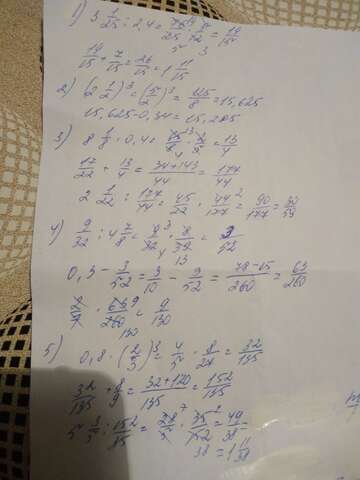 1) 3 1/25 : 2,4 = 76/25 · 5/12 = 19/15
19/15 + 7/15 = 26/15 = 1 11/15
2) (2 1/2)³ = (5/2)³ = 125/8 = 15,625
15,625 - 0,34 = 15,285
3) 8 1/8 · 0,4 = 65/8 · 2/5 = 13/4
17/22 + 13/4 = 34+143/44 = 177/44
2 1/22 : 177/44 = 45/22 · 44/177 = 90/177 = 30/59
4) 9/32 : 4 7/8 = 9/32 · 8/39 = 3/52
0,3 - 3/52 = 3/10 - 9/52 = 78-15/260 = 63/260
63/260 = 9/130
5) 0,8 · (2/3)³ = 4/5 · 8/27 = 32/135
32/135 + 8/9 = 32+120/135 = 152/135
5 3/5 : 152/35 = 28/5 · 35/152 = 49/38 =
38 = 1 11/38